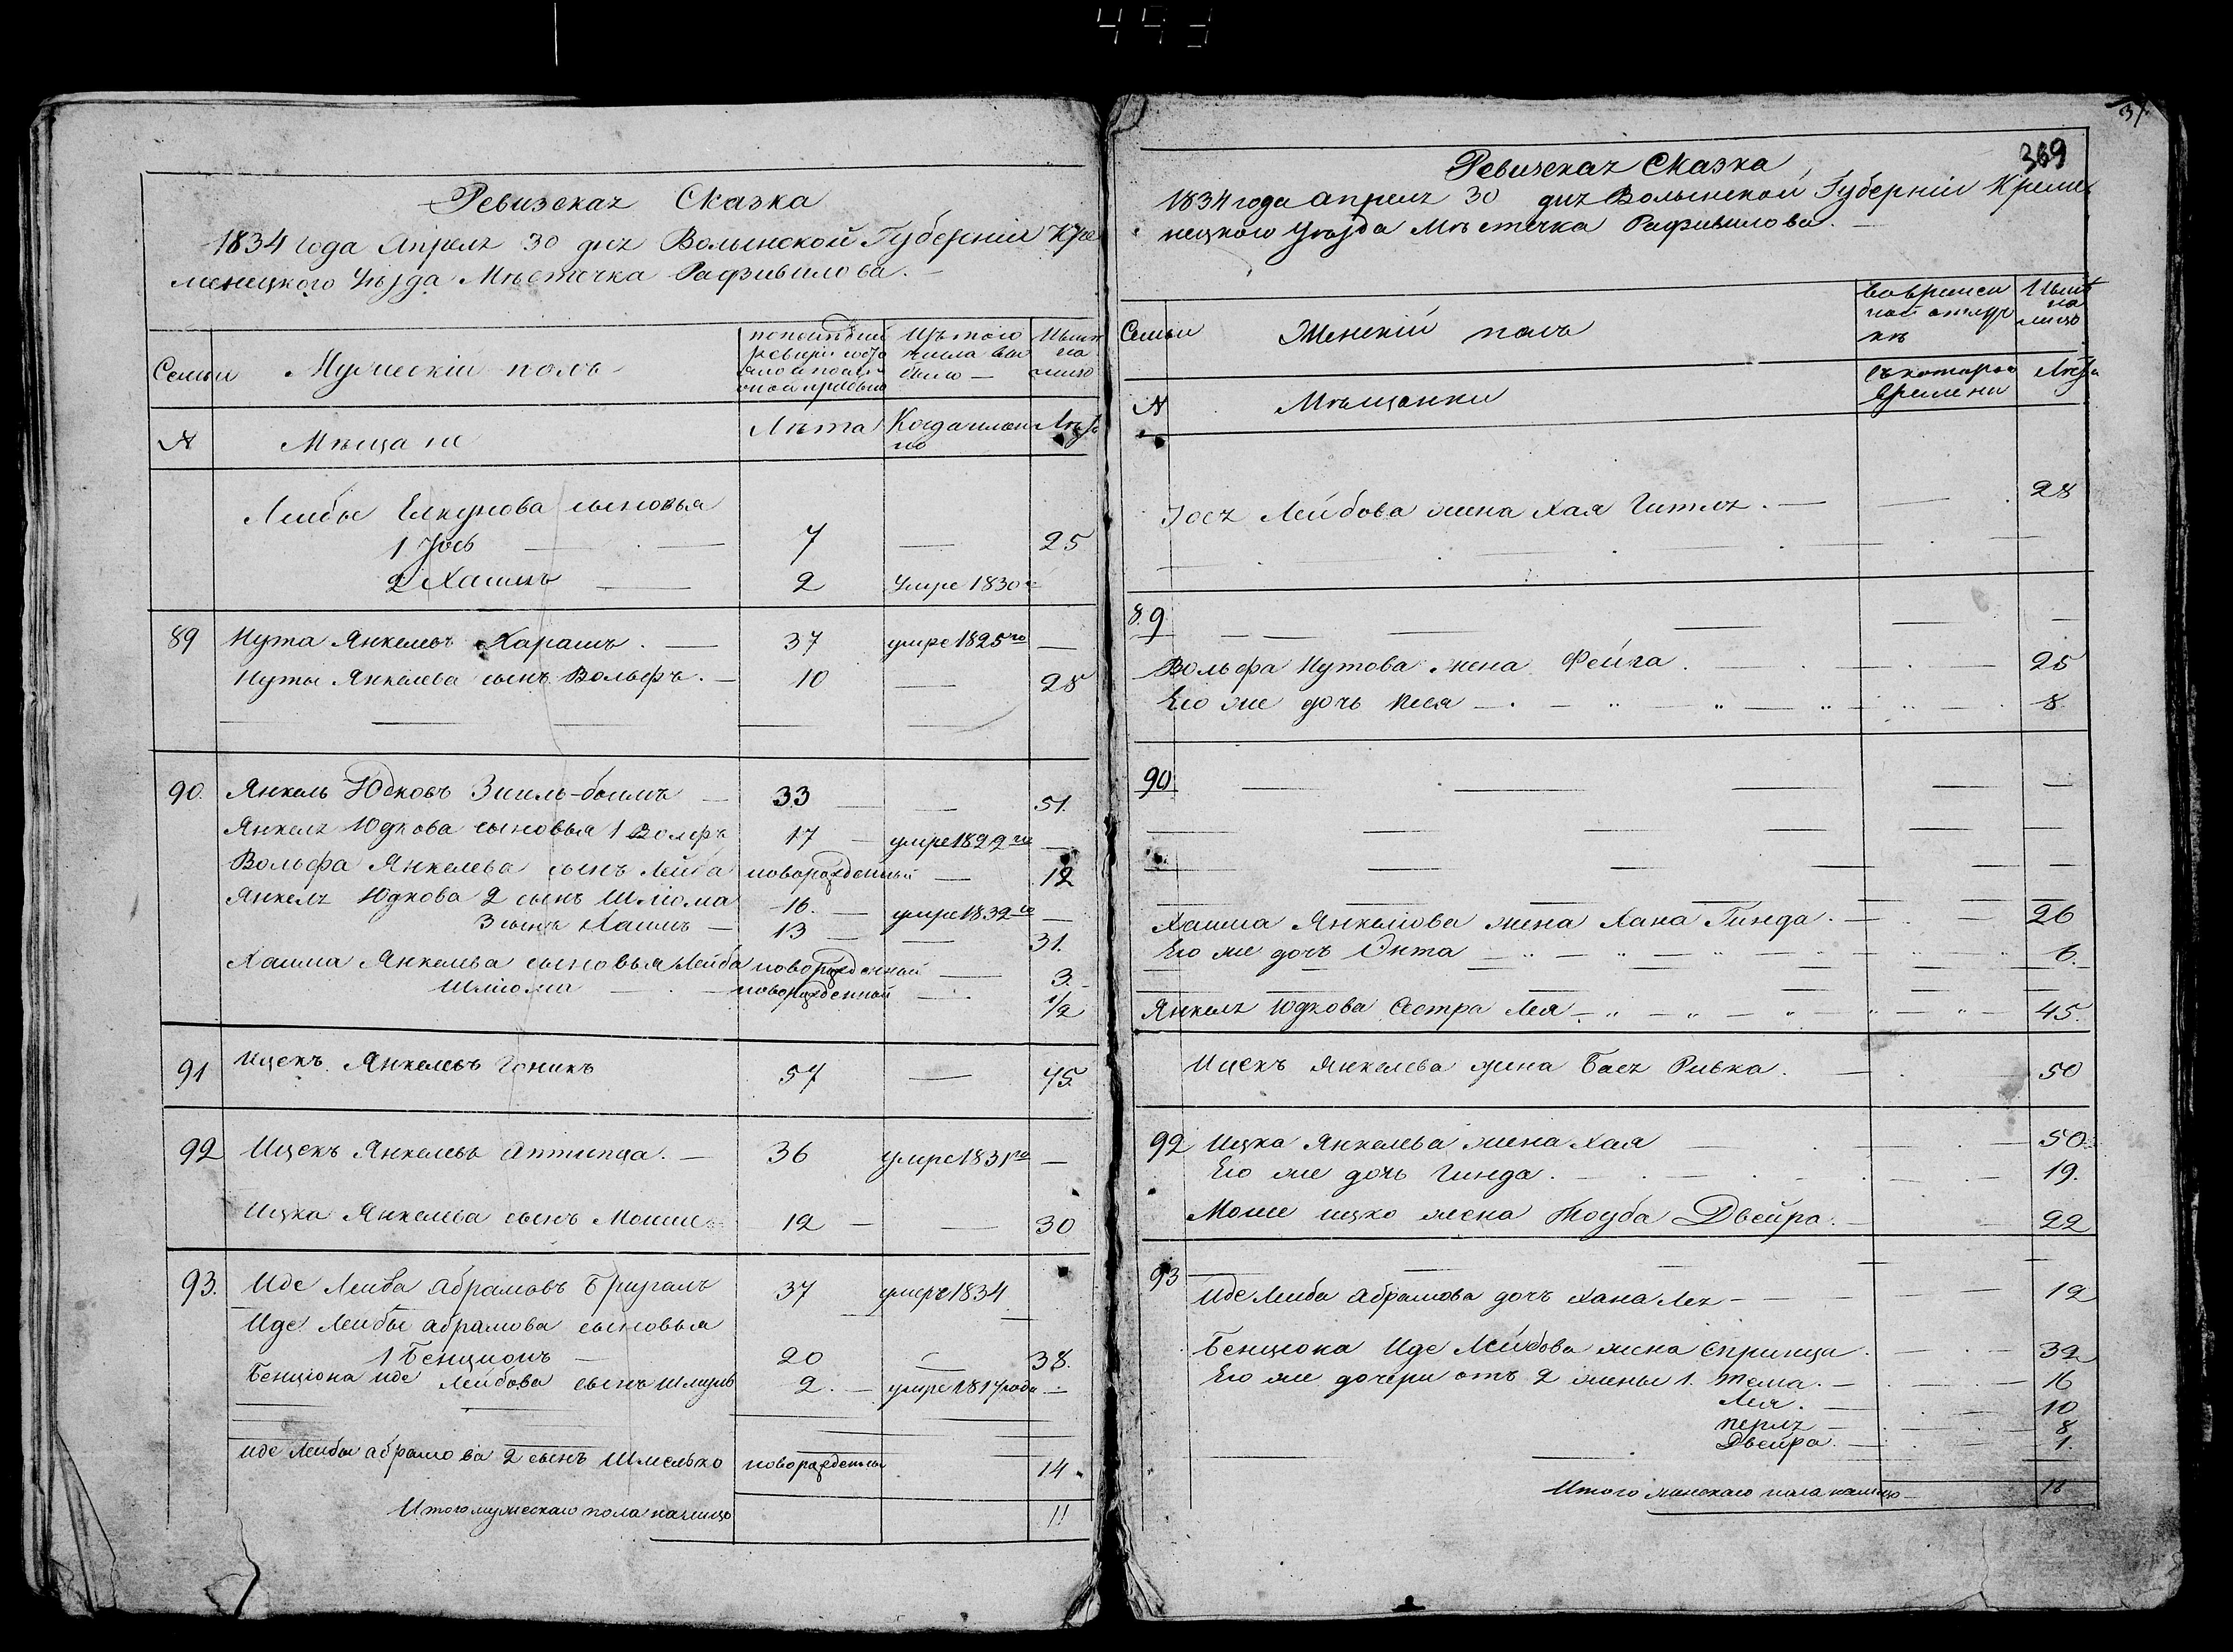 Ревизская Сказка
1834 года Апреля 30 дня Волынской Губерніи Кре
менецкого Уѣзда Мѣстечка Радзивилова. —
Семьи
Мужескій полъ
по последней ревизіи состояло и после оной прибыло
Изъ того числа выбыло —
Нынѣ на лицо
№
Мѣщане
Лѣта
Когда именно
Лѣта
Лейбы сыновья
1 Іось — 7 — 25
2 Хаимъ — 2 умре 1830
89 Нута Янкелевъ Харашъ. — 37 умре 1825го —
Нуты Янкелева сынъ Вольфъ. — 10 — 28
90. Янкель Юдковъ — 33 — 51.
Янкеля Юдкова сыновья 1 Вольфъ 17 — умре 1829го —
Вольфа Янкелева сынъ Лейба новорожденный — 12
Янкеля Юдкова 2 сынъ Шлiома 16. — умре 1832го —
3 сынъ Хаимъ — 13 — 31.
Хаима Янкелева сыновья Лейба новорожденный — 3.
Шлiома — новорожденный — 1/2
91 Ицекъ Янкелевъ Гоникъ 57 — 75.
92 Ицекъ Янкелевъ Аптипца. — 36 умре 1831го —
Ицка Янкелева сынъ Мошко 12 — 30
93. Иде Лейба Абрамовъ 37 умеръ 1834
Иде Лейбы абрамова сыновья
1 Бенционъ — 20 38.
Бенціона Иде Лейбова сынъ Шмуль 2. — умре 1817 года —
Иде Лейбы абрамова 2 сынъ Шмелько новорожденный 14.
Итого мужескаго пола налицо 11
31
369
Ревизская Сказка
1834 года Апреля 30 дня Волынской Губерніи Креме
нецкого Уѣзда Мѣстечка Радзивилова. —
Семьи
Женскій полъ
Во временной отлучкѣ
Нынѣ на лицо
№
Мѣщанки
Съ котораго времени
Лѣта
Іося Лейбова жена Хая Гитля. — 28
89
Вольфа Нутова жена Фейга. — 25
Его же дочь Песя — 8.
90
Хаима Янкелiова жена Хана Гинда. — 26
Его же дочь Окта — 6.
Янкеля Юдкова Сестра Лея — 45.
Ицекъ Янкелева жена Бася Ривка. — 50
92 Ицка Янкелева жена Хая — 50
Его же дочь Гинда. — 19.
Моше ицко жена Тоуба Двейра. — 22
93
Иде Лейбы Абрамова дочь Хана Лея — 12
Бенціона Иде Лейбова жена Спринца. — 32
Его же дочери отъ 2 жены 1. Тема. — 16
Лея. — 10
Перля — 8
Двейра. — 1.
Итого женскаго пола налицо — 16